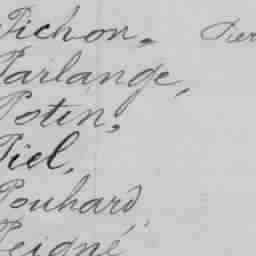 Pichon, Pier
Parlange,
Potin,
Piel,
Pouhard,
Peigné